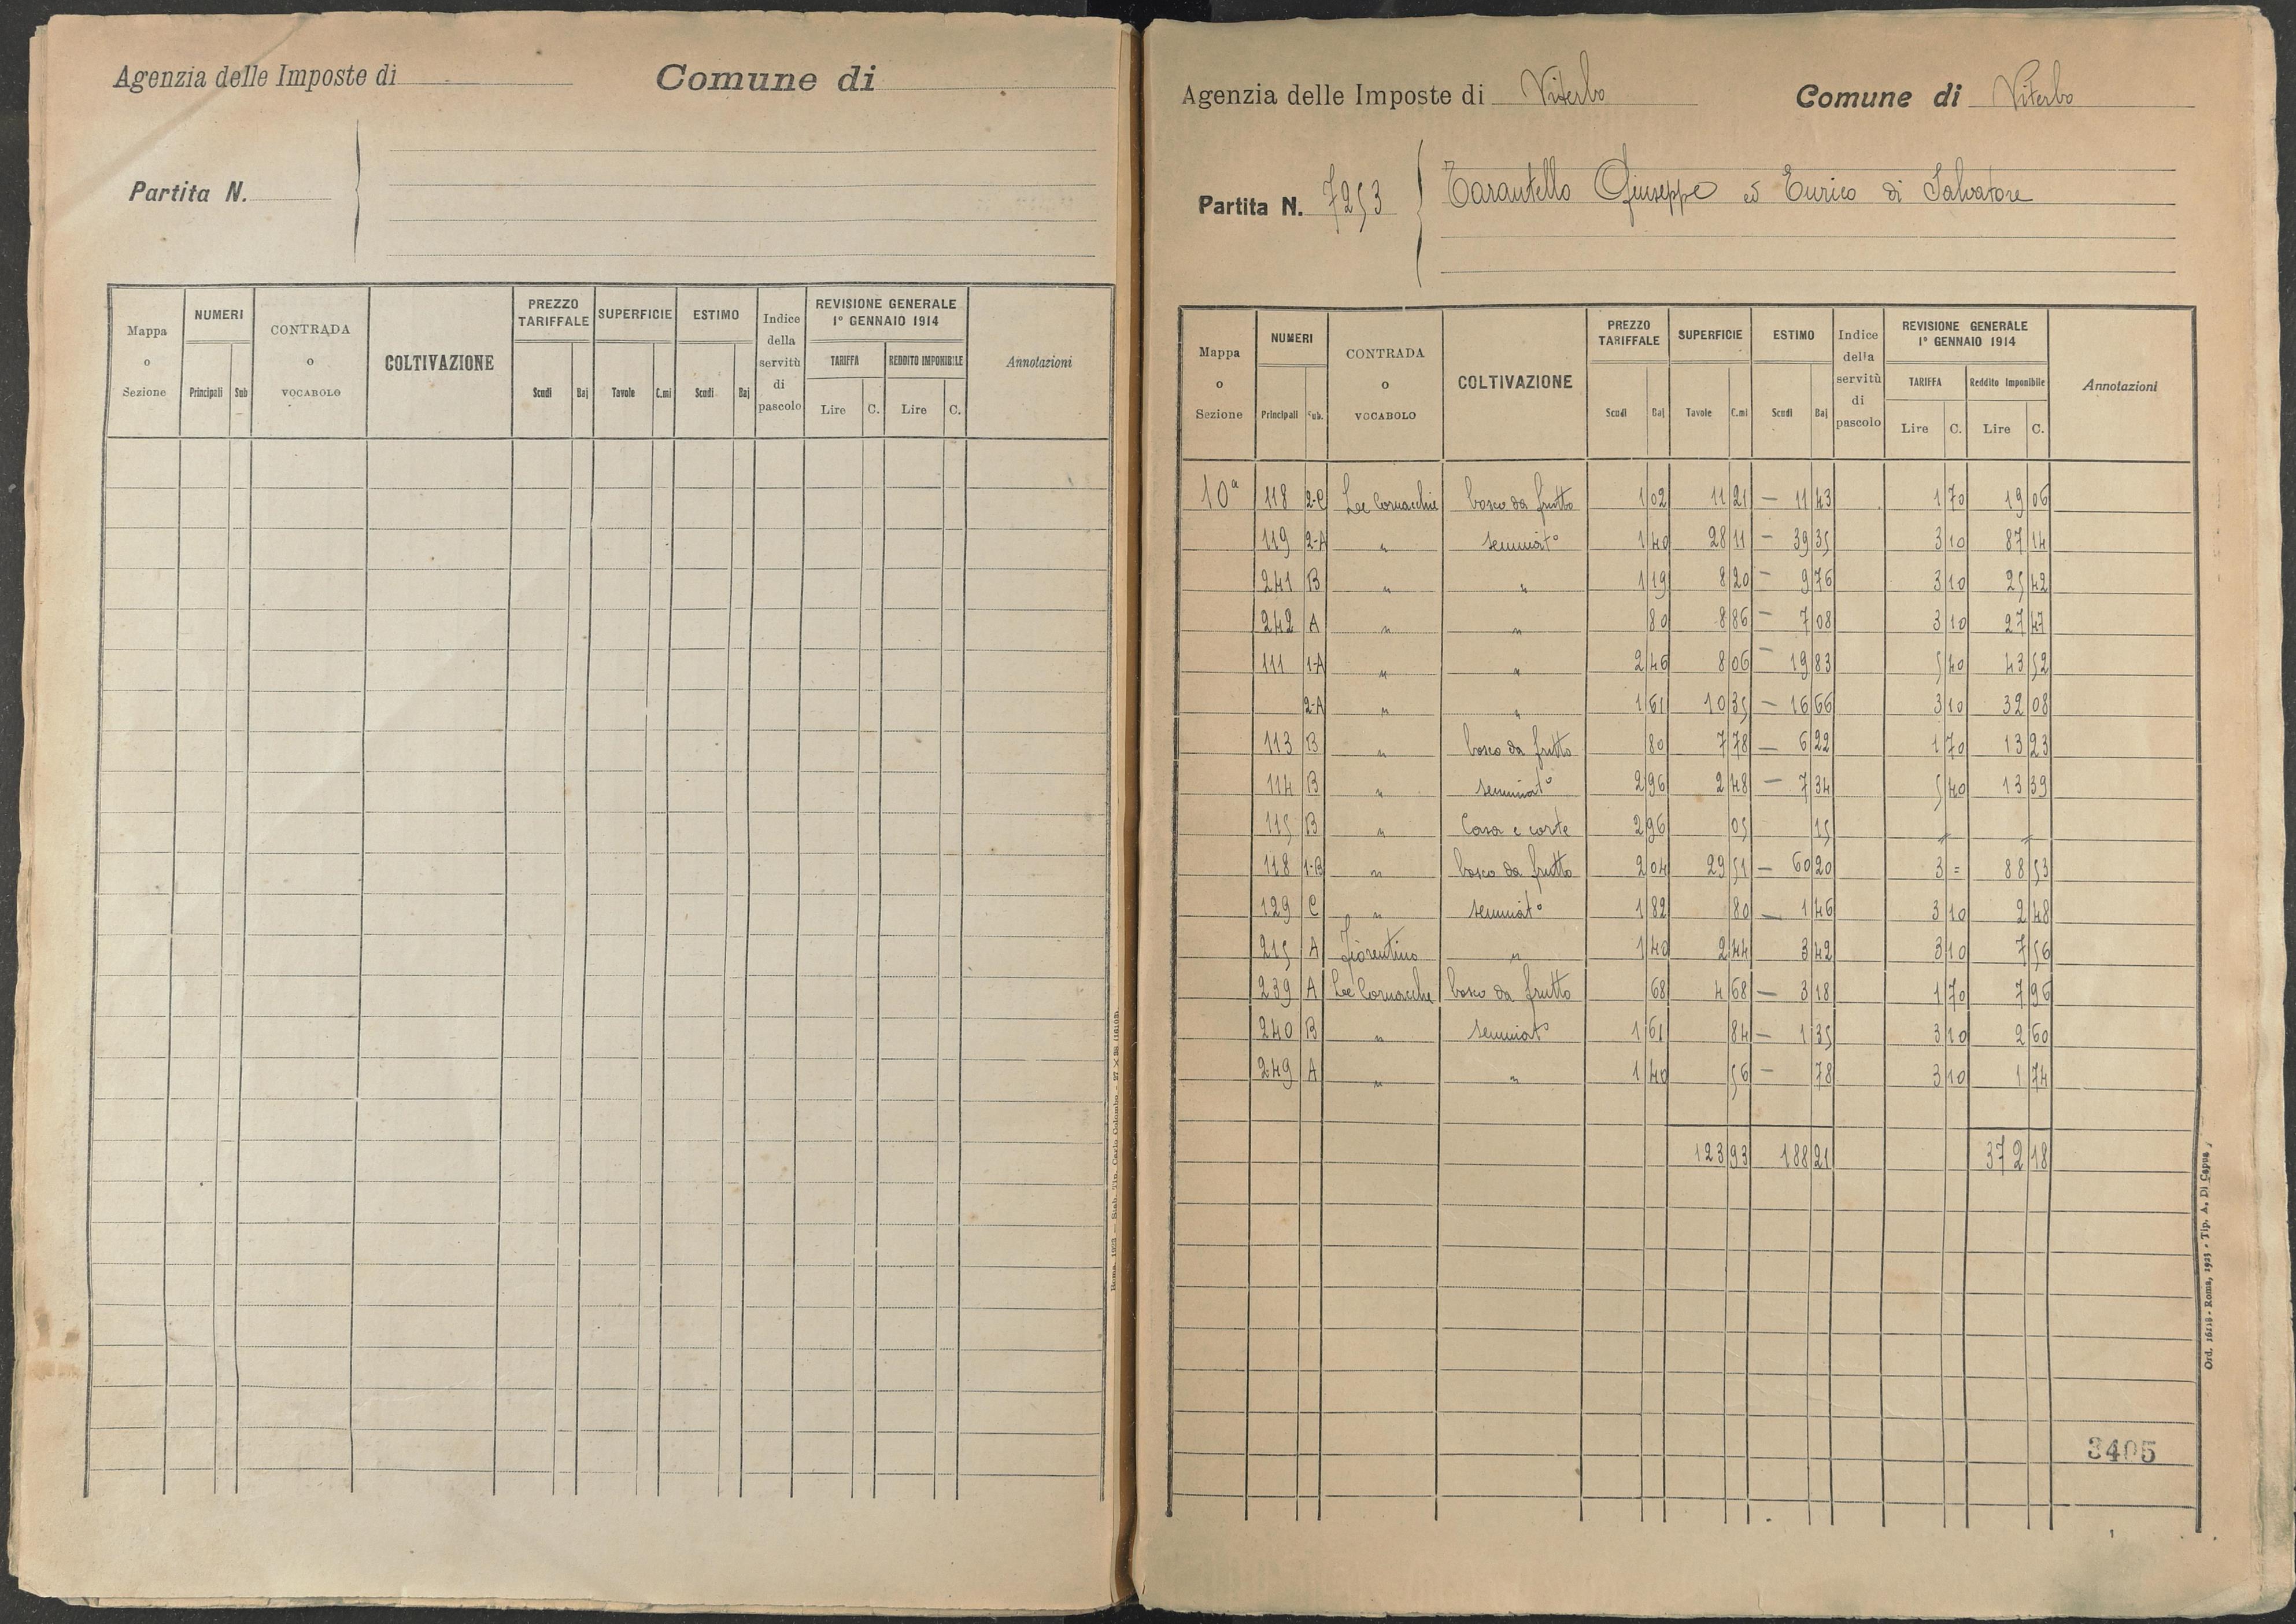 Agenzia delle Imposte di Comune di
Partita N.
Mappa o Sezione NUMERI Principali Sub CONTRADA o VOCABOLO COLTIVAZIONE PREZZO TARIFFALE Scudi Baj SUPERFICIE Tavole C.mi ESTIMO Scudi Baj Indice della servitù di pascolo REVISIONE GENERALE 1° GENNAIO 1914 TARIFFA Lire C. REDDITO IMPONIBILE Lire C. Annotazioni
Agenzia delle Imposte di Viterbo Comune di Viterbo
Partita N. 7253 Tarantello Giuseppe ed Enrico di Salvatore
Mappa o Sezione NUMERI Principali Sub. CONTRADA o VOCABOLO COLTIVAZIONE PREZZO TARIFFALE Scudi Baj SUPERFICIE Tavole C.mi ESTIMO Scudi Baj Indice della servitù di pascolo REVISIONE GENERALE 1° GENNAIO 1914 TARIFFA Lire C. Reddito Imponibile Lire C. Annotazioni
10ª 118 2-C Le Cornacchie bosco da frutto 1 02 11 21 — 11 43 1 70 19 06
119 2-A " seminatº 1 40 28 11 — 39 35 3 10 87 14
241 B " " 1 19 8 20 — 9 76 3 10 25 42
242 A " " 80 8 86 — 7 08 3 10 27 47
111 1-A " " 2 46 8 06 — 19 83 5 40 43 52
2-A " " 1 61 10 35 — 16 66 3 10 32 08
113 B " bosco da frutto 80 7 78 — 6 22 1 70 13 23
114 B " seminatº 2 96 2 48 — 7 34 5 40 13 39
115 B " Casa e corte 2 96 05 15 " "
118 1-B " bosco da frutto 2 04 29 51 — 60 20 3 = 88 53
129 C " seminatº 1 82 80 — 1 46 3 10 2 48
215 A Fiorentino " 1 40 2 44 3 42 3 10 7 56
239 A Le Cornacchie bosco da frutto 68 4 68 — 3 18 1 70 7 96
240 B " seminatº 1 61 84 — 1 35 3 10 2 60
249 A " " 1 40 56 — 78 3 10 1 74
123 93 188 21 372 18
3405
Ord. 16418 - Roma, 1923 - Tip. A. Di Capua